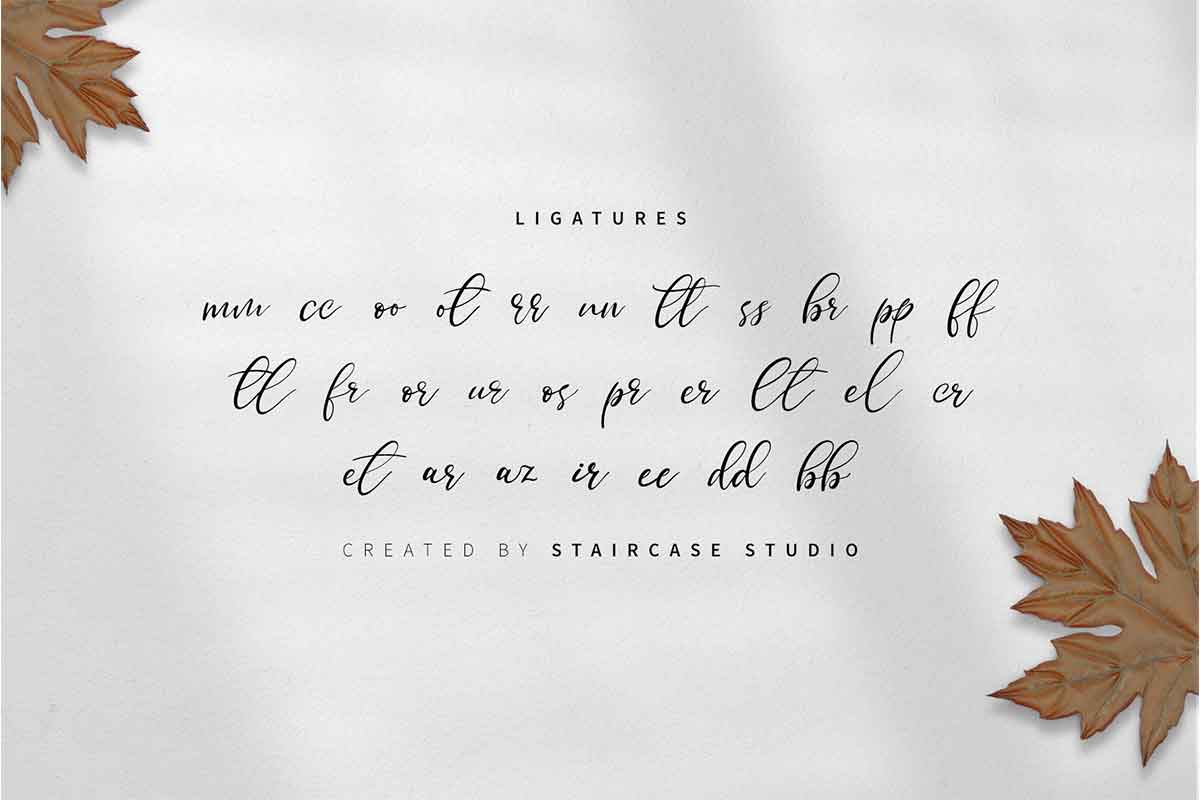 LIGATURES
mm cc oo ot rr nn tt ss br pp ff
tl fr or ur os pr er lt el cr
et ar az ir ee dd bb
CREATED BY STAIRCASE STUDIO